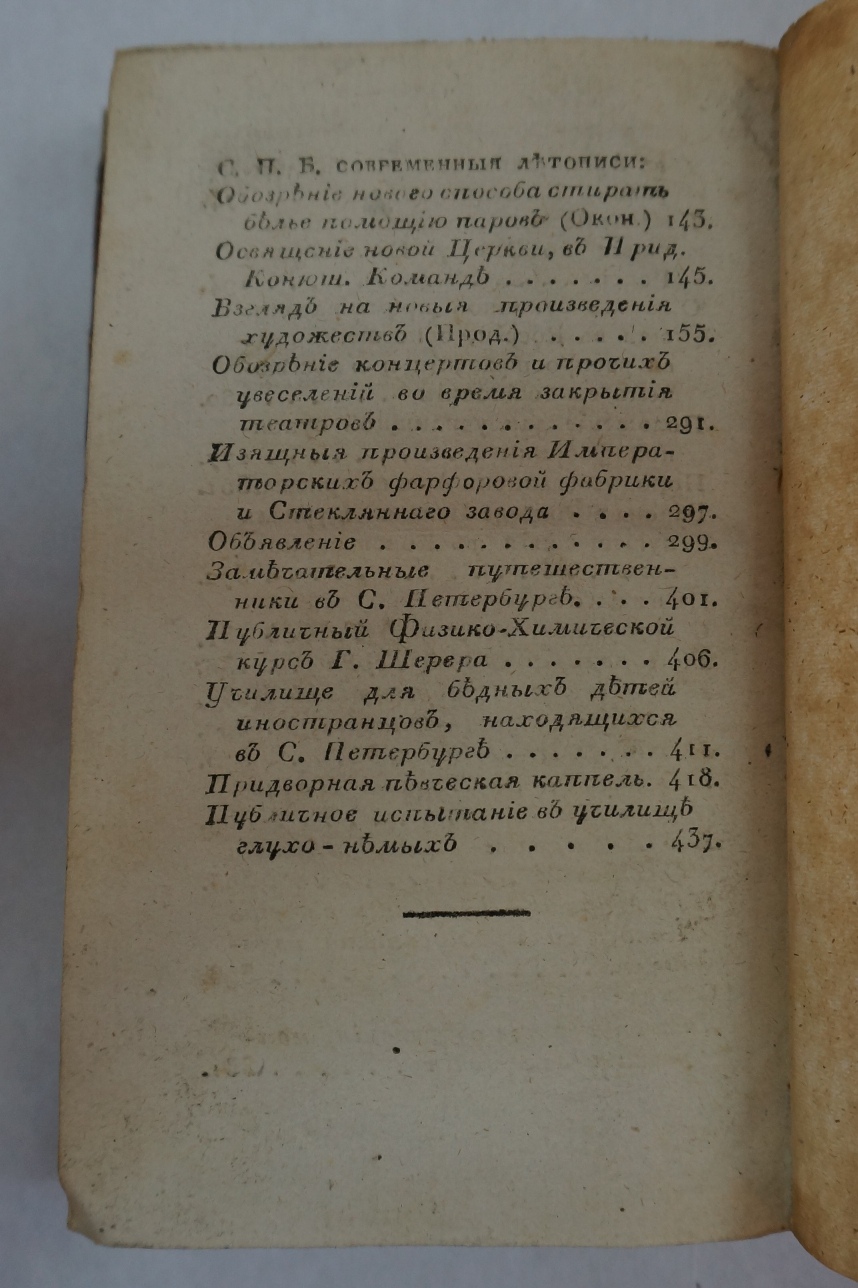 С. П. Б. СОВРЕМЕННЫЯ ЛѢТОПИСИ:
Обозрѣніе новаго способа стирать
бѣлье помощію паровъ (Окон.) 143.
Освященіе новой Церкви, въ Прид.
Конюш. Командѣ . . . . . . . 145.
Взглядъ на новыя произведенія
художествъ (Прод.) . . . . . 155.
Обозрѣніе концертовъ и прочихъ
увеселеній во время закрытія
театровъ . . . . . . . . . . . . 291.
Изящныя произведенія Импера-
торскихъ фарфоровой фабрики
и Стекляннаго завода . . . . 297.
Объявленіе . . . . . . . . . . . . 299.
Замѣчательные путешествен-
ники въ С. Петербургѣ. . . . 401.
Публичный Физико-Химической
курсъ Г. Шерера . . . . . . . 406.
Училище для бѣдныхъ дѣтей
иностранцовъ, находящихся
въ С. Петербургѣ . . . . . . . 411.
Придворная пѣвческая каппель. 418.
Публичное испытаніе въ училищѣ
глухо-нѣмыхъ . . . . . 437.